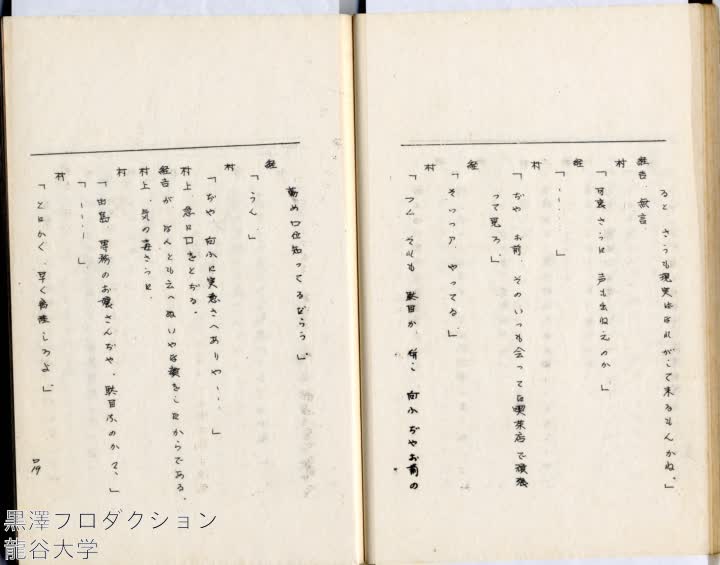 ると さうも現実はなれがして来るもんかね。」
経吉、無言。
村
「可哀さうに 声も出ねえのか 」
経
「……」
村
「ぢや お前、そのいつも会ってる喫茶店で頑張
って見ろ」
経
「そいつァ やってる 」
村
「フム、それも 駄目か、併し 向ふぢやお前の
勤め口位知ってるだらう 」
経
「うん 」
村
「ぢや、向ふに実意さへありや…… 」
村上、急に口をとぢる。
経吉が なんとも云へぬいやな顔をしたからである。
村上、気の毒さうに、
村
「由島、専務のお嬢さんぢや、駄目なのかて、」
「……」
村
「とにかく、早く為性しろよ 」
黒澤プロダクション
龍谷大学